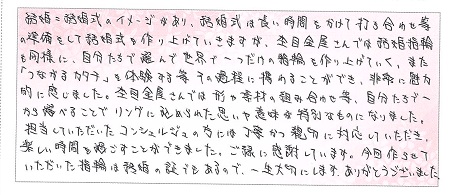 結婚=結婚式のイメージがあり、結婚式は長い時間をかけて打ち合わせ等
の準備をして結婚式を作り上げていきますが、杢目金屋さんでは結婚指輪
も同様に、自分たちで選んで世界で一つだけの指輪を作り上げていく、また
「つながるカタチ」を体験する等その過程に携わることができ、非常に魅力
的に感じました。杢目金屋さんでは形や素材の組み合わせ等、自分たちで一
から選べることでリングに込められた思いや意味が特別なものになりました。
担当していただいたコンシェルジュの方には丁寧かつ親切に対応していただき、
楽しい時間を過ごすことができました。ご縁に感謝しています。今回作らせて
いただいた指輪は結婚の証でもあるので、一生大切にします。ありがとうございました。